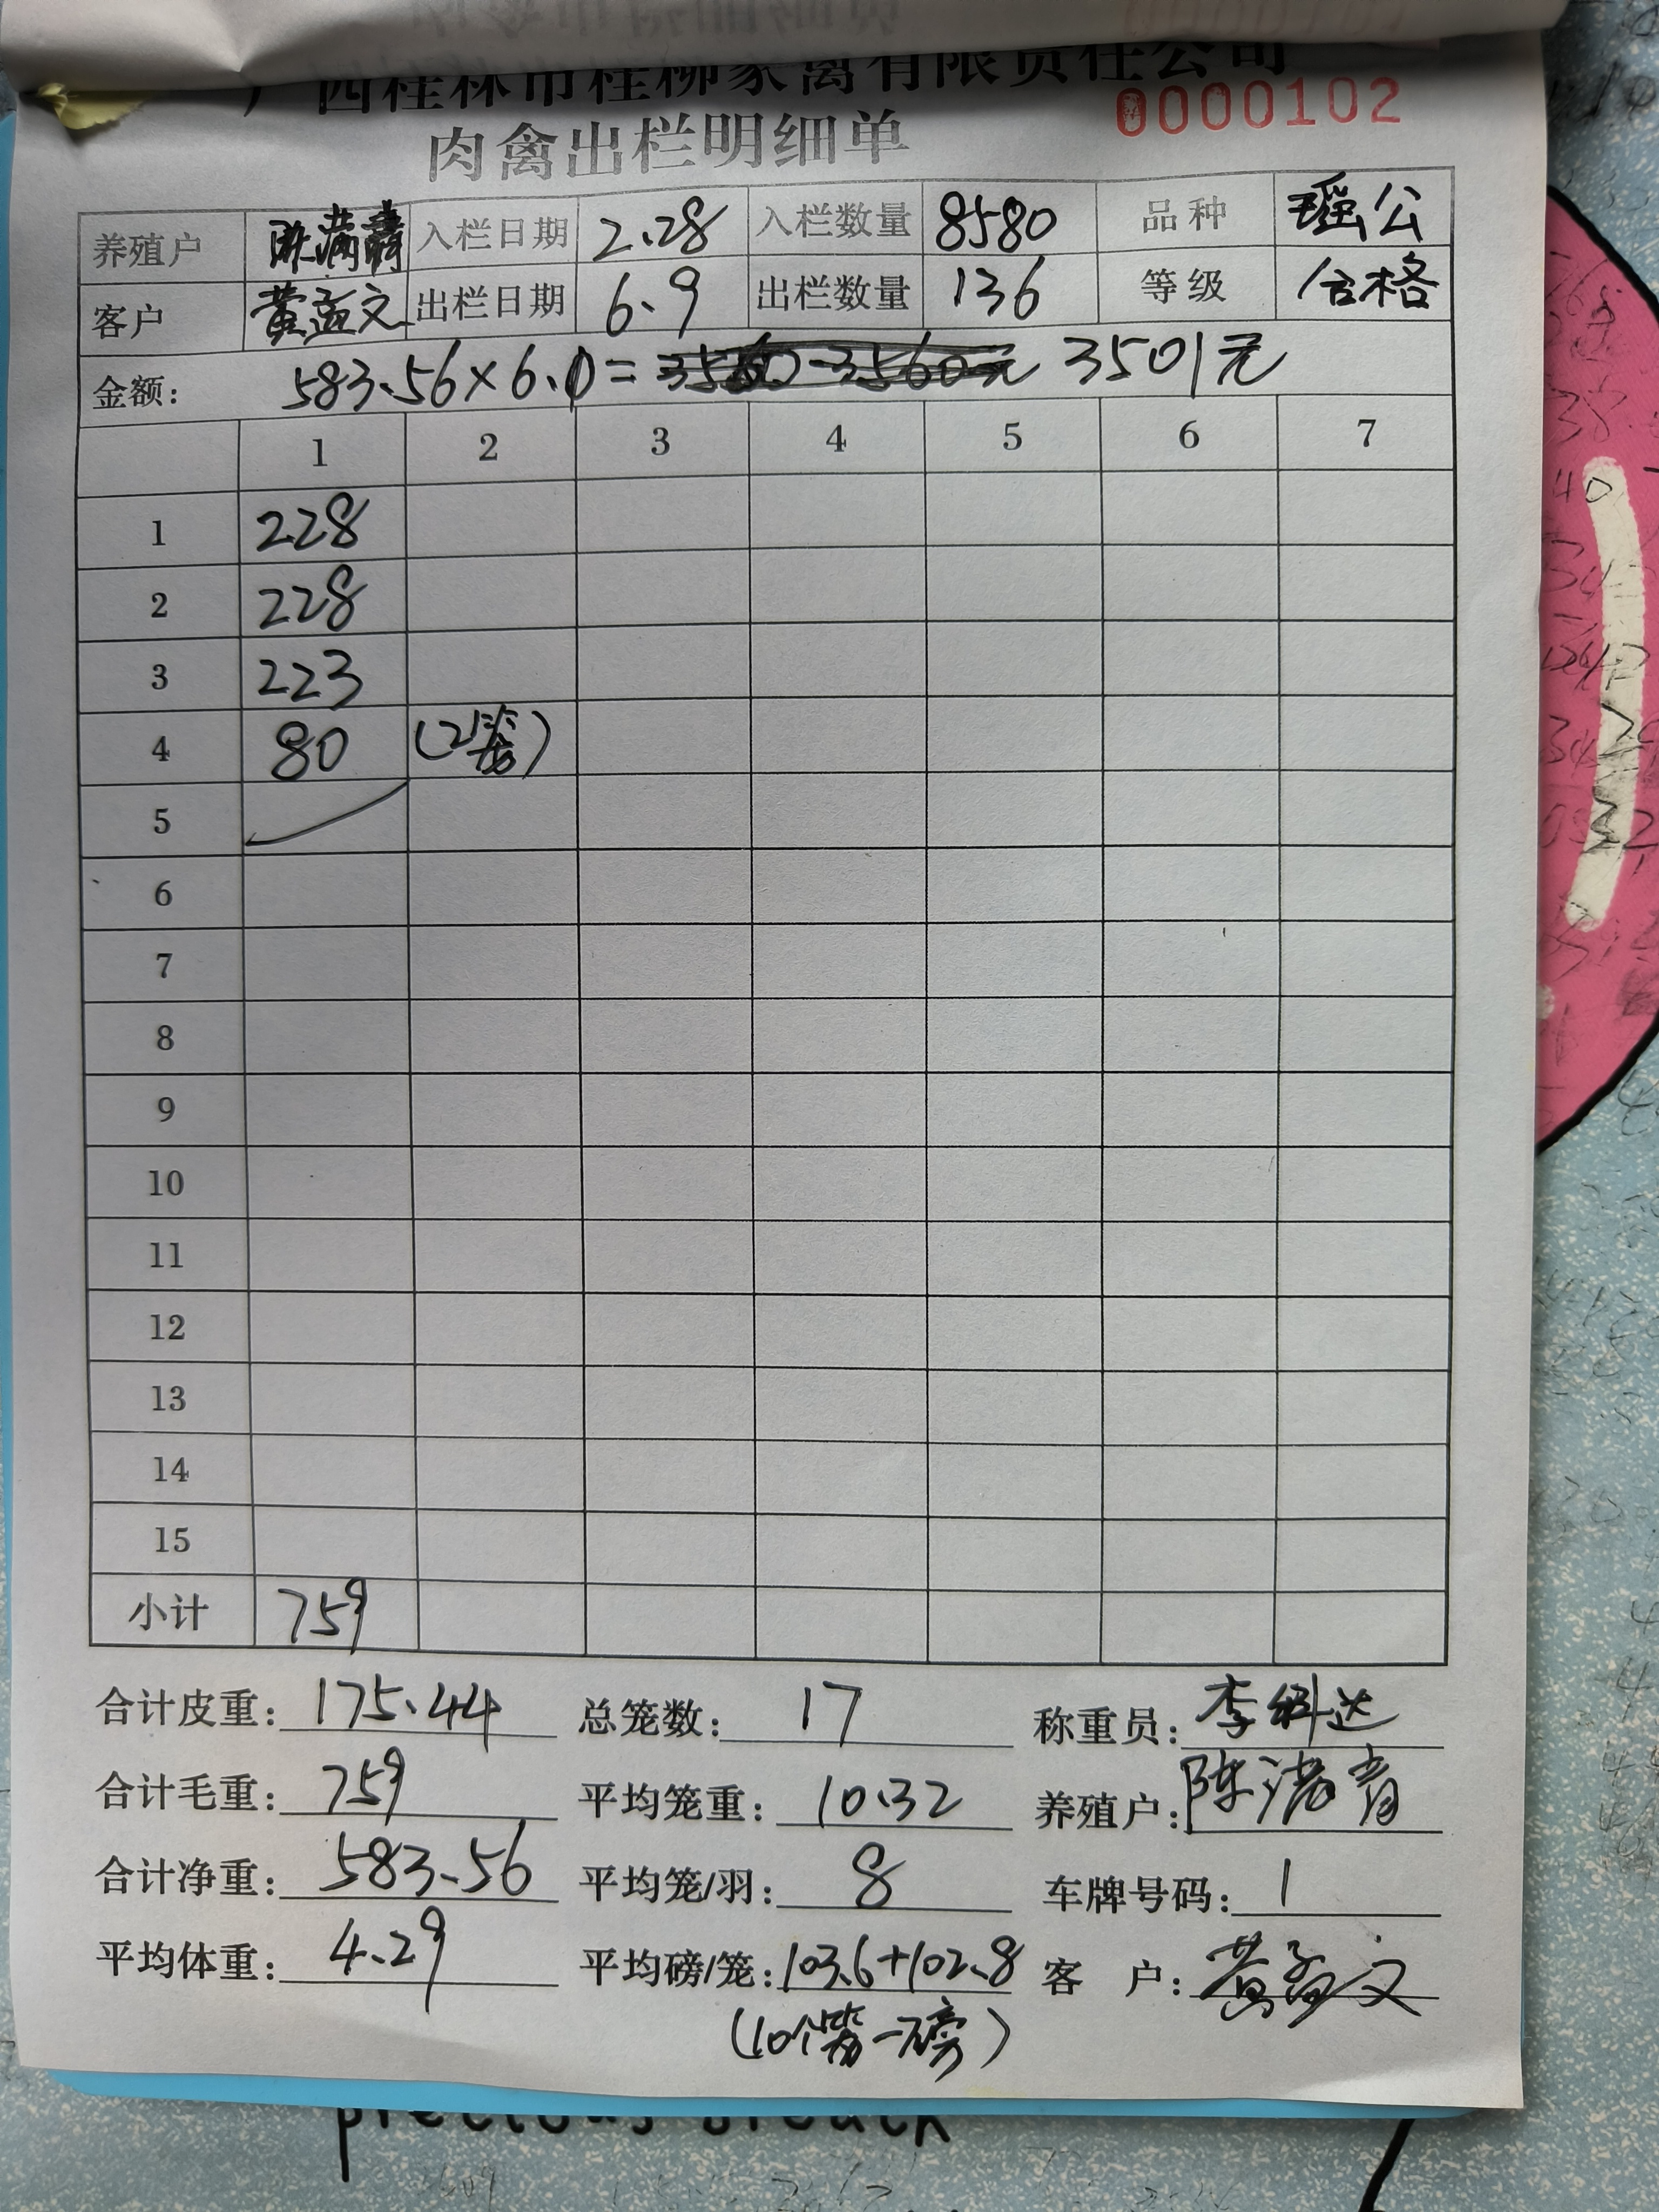 广西桂林市桂柳家禽有限责任公司
0000102
肉禽出栏明细单
养殖户 入栏日期 2.28 入栏数量 8580 品种 瑶公
客户 黄孟文 出栏日期 6.9 出栏数量 136 等级 合格
金额: 583.56×6.0= 3501元
1 2 3 4 5 6 7
1 228
2 228
3 223
4 80 (2笼)
5
6
7
8
9
10
11
12
13
14
15
小计 759
合计皮重: 175.44 总笼数: 17 称重员: 李科达
合计毛重: 759 平均笼重: 10.32 养殖户: 陈
合计净重: 583.56 平均笼/羽: 8 车牌号码: 1
平均体重: 4.29 平均磅/笼: 103.6+102.8 客 户: 黄孟文
(10个笼一磅)
precious